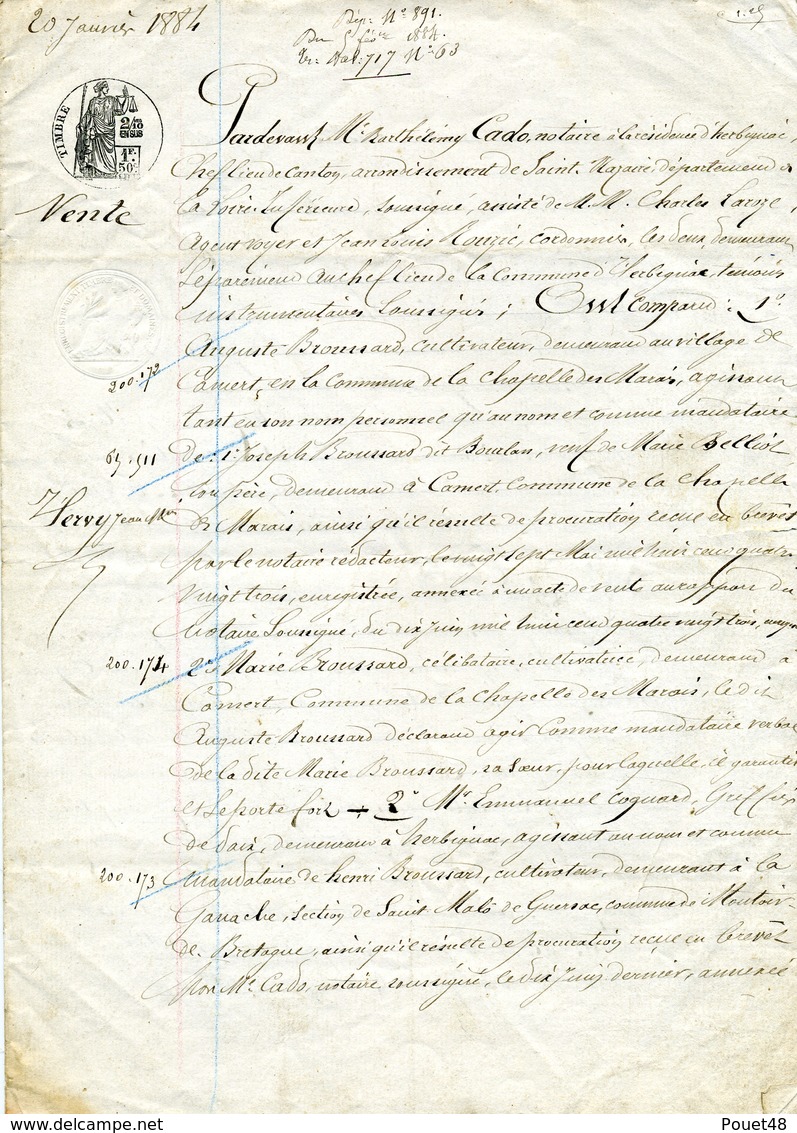 20 Janvier 1884
Dép. N° 891.
Du 5 fév. 1884.
Tr: Hab: 717 N° 63
TIMBRE
2/10
EN SUS
1F.
50c
Vente
Pardevant Me Barthélémy Cado, notaire à la résidence d'herbignac,
Chef lieu de canton, arrondissement de Saint-Nazaire, département de
la Loire-Inférieure, soussigné, assisté de M.M. Charles Laroze,
agent voyer et Jean Louis Rouzic, cordonnier, les deux demeurant
séparément au chef lieu de la commune d'Herbignac, témoins
instrumentaires soussignés; Ont Comparu: 1°
Auguste Broussard, cultivateur, demeurant au village de
200.172
Camert, en la commune de la chapelle des Marais, agissant
tant en son nom personnel qu'au nom et comme mandataire
de: 1° Joseph Broussard dit Bourlan, veuf de Marie Belliot
69.511
son père, demeurant à Camert, Commune de la Chapelle
Hervy Jean Men
des Marais, ainsi qu'il résulte de procuration reçue en brevet
par le notaire rédacteur, le vingt sept Mai mil huit cent quatre
vingt trois, enregistrée, annexée à un acte de vente au rapport du
Notaire Soussigné, du dix Juin mil huit cent quatre vingt trois, enregis
200.174
2° Marie Broussard, célibataire, cultivatrice, demeurant à
Camert, Commune de la Chapelle des Marais, le dit
Auguste Broussard déclarant agir comme mandataire verbal
de la dite Marie Broussard, sa sœur, pour laquelle, il garantit
et se porte fort 2° Mr Emmanuel Coquard, Greffier
de paix, demeurant à herbignac, agissant au nom et comme
200.173
mandataire de henri Broussard, cultivateur, demeurant à la
Ganache, section de Saint Malo de Guersac, commune de Montoir-
de-Bretagne, ainsi qu'il résulte de procuration reçue en brevet
par Me Cado, notaire soussigné, le dix Juin dernier, annexée
Pouet48